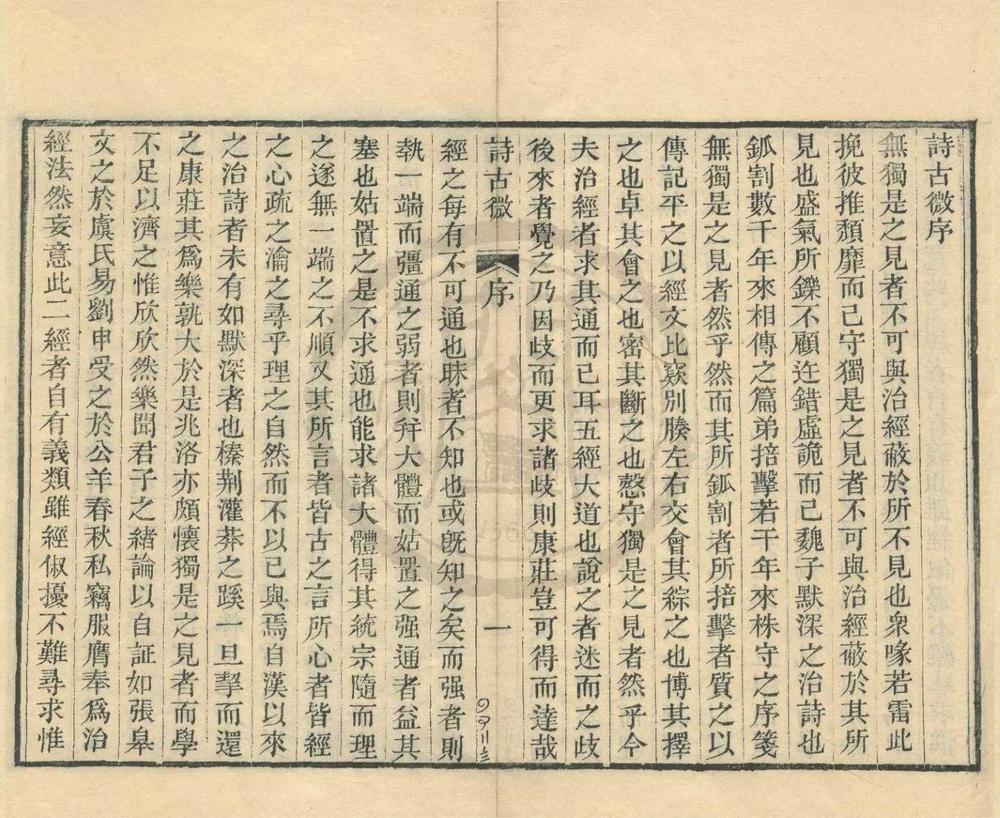 詩古微序
無獨是之見者不可與治經蔽於所不見也衆喙若雷此
挽彼推頹靡而已守獨是之見者不可與治經蔽於其所
見也盛氣所鑠不顧迕錯虛詭而已魏子默深之治詩也
釽割數千年來相傳之篇弟掊擊若干年來株守之序箋
無獨是之見者然乎然而其所釽割者所掊擊者質之以
傳記平之以經文比窾別腠左右交會其綜之也博其擇
之也卓其會之也密其斷之也慤守獨是之見者然乎今
夫治經者求其通而已耳五經大道也說之者迷而之歧
後來者覺之乃因歧而更求諸歧則康莊豈可得而達哉
詩古微 序 一
經之每有不可通也昧者不知也或旣知之矣而强者則
執一端而彊通之弱者則弁大體而姑置之强通者益其
塞也姑置之是不求通也能求諸大體得其統宗隨而理
之逐無一端之不順又其所言者皆古之言所心者皆經
之心疏之瀹之尋乎理之自然而不以己與焉自漢以來
之治詩者未有如默深者也榛荆灌莽之蹊一旦挈而還
之康莊其爲樂孰大於是兆洛亦頗懷獨是之見者而學
不足以濟之惟欣欣然樂聞君子之緒論以自証如張皋
文之於虞氏易劉申受之於公羊春秋私竊服膺奉爲治
經法然妄意此二經者自有義類雖經俶擾不難尋求惟